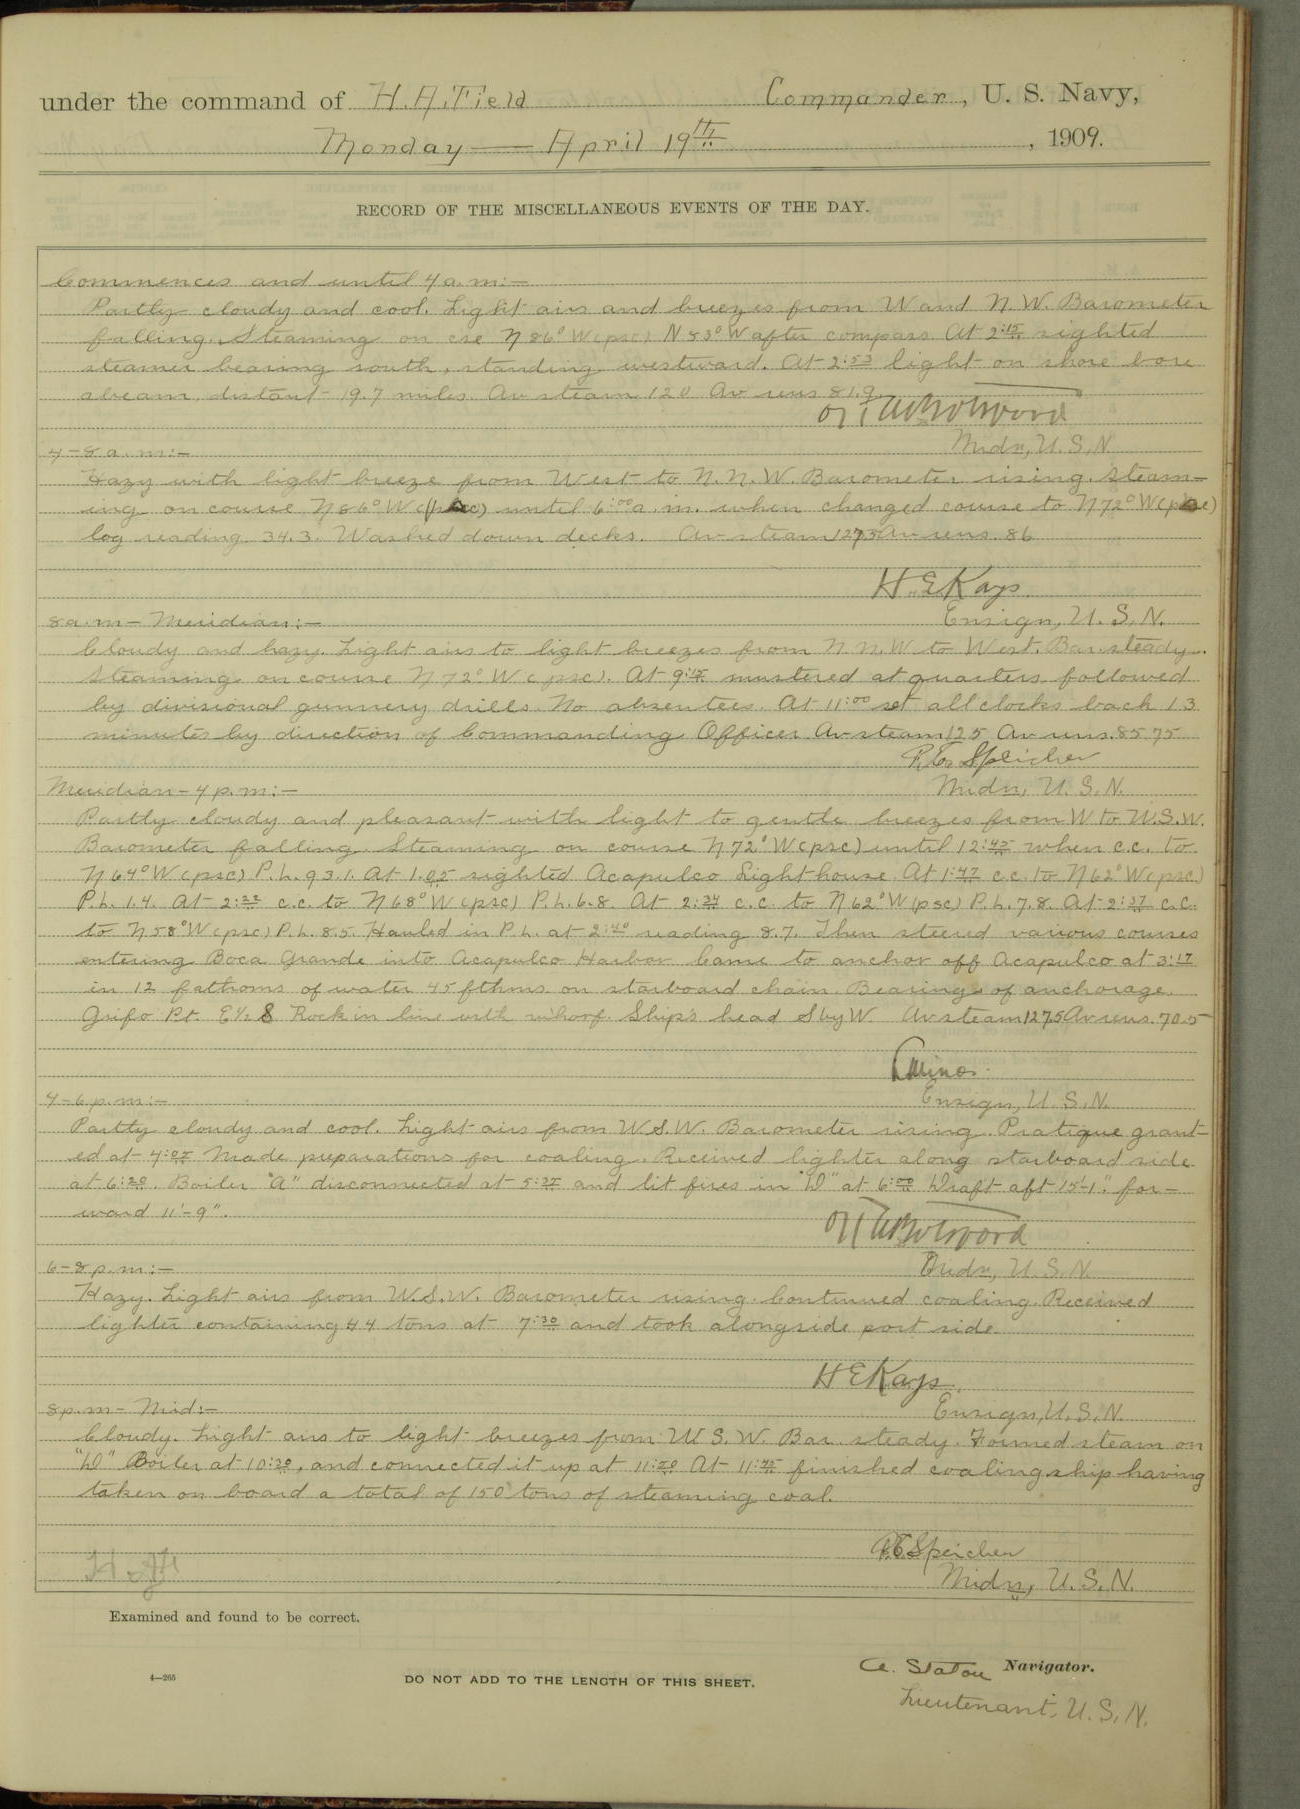 under the command of H.A. Field Commander, U. S. Navy,
Monday — April 19th, 1909.
RECORD OF THE MISCELLANEOUS EVENTS OF THE DAY.
Commences and until 4 a.m:-
Partly cloudy and cool. Light airs and breezes from W and N.W. Barometer
falling. Steaming on cse N 86° W (psc) N 83° W after compass. At 2:15 sighted
steamer bearing south, standing westward. At 2:53 light on shore bore
abeam, distant 19.7 miles. Av steam 120 Av revs 81.9
Midn, U.S.N.
4-8 a.m:-
Hazy with light breeze from West to N.N.W. Barometer rising. Steam-
ing on course N 86° W (psc) until 6:00 a.m. when changed course to N 72° W (psc)
log reading 34.3. Washed down decks. Av steam 127.5 Av revs. 86
H.E. Kays
Ensign, U.S.N.
8 a.m - Meridian:-
Cloudy and hazy. Light airs to light breezes from N.N.W to West. Bar. steady.
Steaming on course N 72° W (psc). At 9:15 mustered at quarters followed
by divisional gunnery drills. No absentees. At 11:00 set all clocks back 13
minutes by direction of Commanding Officer Av steam 125 Av revs. 85.75
R.E. Speicher
Midn, U.S.N.
Meridian - 4 p.m:-
Partly cloudy and pleasant with light to gentle breezes from W to W.S.W.
Barometer falling. Steaming on course N 72° W (psc) until 12:45 when c.c. to
N 64° W (psc) P.L. 93.1. At 1:05 sighted Acapulco Lighthouse. At 1:47 c.c. to N 62° W (psc)
P.L. 1.4. At 2:22 c.c. to N 68° W (psc) P.L. 6.8. At 2:34 c.c. to N 62° W (psc) P.L. 7.8. At 2:37 c.c.
to N 58° W (psc) P.L. 8.5. Hauled in P.L. at 2:40 reading 8.7. Then steered various courses
entering Boca Grande into Acapulco Harbor. Came to anchor off Acapulco at 3:17
in 12 fathoms of water 45 fthms. on starboard chain. Bearings of anchorage.
Grifo Pt. E ½ S Rock in line with wharf. Ship's head S by W. Av steam 127.5 Av revs. 70.5
Ensign, U.S.N.
4-6 p.m:-
Partly cloudy and cool. Light airs from W.S.W. Barometer rising. Pratique grant-
ed at 4:05 Made preparations for coaling. Received lighter along starboard side
at 6:20. Boiler "A" disconnected at 5:25 and lit fires in "D" at 6:00 Draft aft 15'-1", for-
ward 11'-9".
Midn, U.S.N.
6-8 p.m:-
Hazy. Light airs from W.S.W. Barometer rising. Continued coaling. Received
lighter containing 44 tons at 7:30 and took alongside port side.
H E Kays
Ensign, U.S.N.
8 p.m - Mid:-
Cloudy. Light airs to light breezes from W.S.W. Bar steady. Formed steam on
"D" Boiler at 10:30, and connected it up at 11:20 At 11:45 finished coaling ship having
taken on board a total of 150 tons of steaming coal.
R.E. Speicher
Midn, U.S.N.
H.A.F.
Examined and found to be correct.
A. Staton Navigator.
4—265
DO NOT ADD TO THE LENGTH OF THIS SHEET.
Lieutenant, U.S.N.